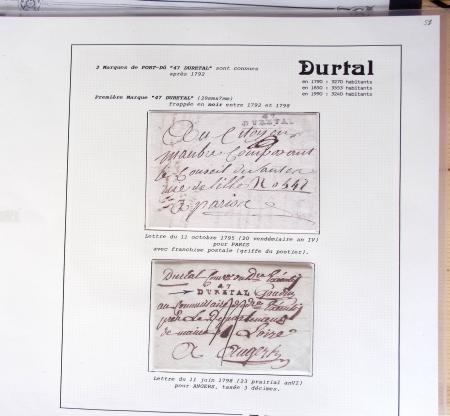 58
2 Marques de PORT-DÛ "47 DURETAL" sont connues
après 1792
Durtal
en 1790 : 3270 habitants
en 1850 : 3553 habitants
en 1990 : 3240 habitants
Première Marque "47 DURETAL" (29mmx7mm)
frappée en noir entre 1792 et 1798
47
DURETAL
Au Citoyen
le Conseil
rue de lille No 547
à paris
Lettre du 11 octobre 1795 (20 vendémiaire an IV)
pour PARIS
avec franchise postale (griffe du postier).
Durtal
47
DURETAL
au
de maine Loire
à Angers
Lettre du 11 juin 1798 (23 prairial anVI)
pour ANGERS, taxée 3 décimes.